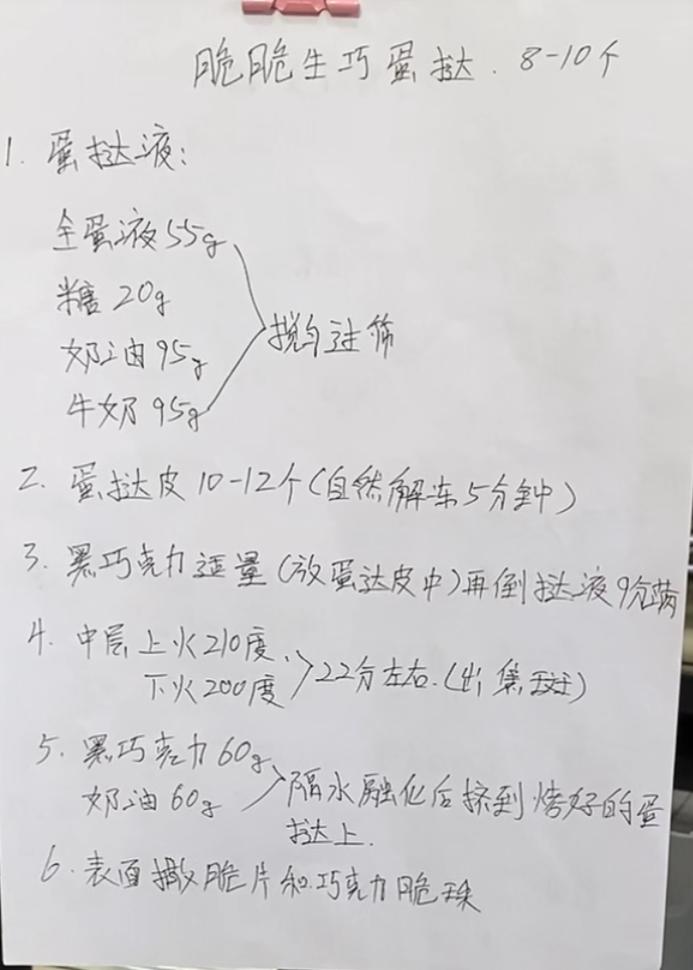 脆脆生巧蛋挞. 8-10个
1. 蛋挞液:
全蛋液 55g
糖 20g
奶油 95g
牛奶 95g
搅匀过筛
2. 蛋挞皮 10-12个(自然解冻5分钟)
3. 黑巧克力适量(放蛋达皮中)再倒挞液9分满
4. 中层上火210度
下火200度
22分左右.(出焦斑)
5. 黑巧克力 60g
奶油 60g
隔水融化后挤到烤好的蛋
挞上.
6. 表面撒脆片和巧克力脆珠